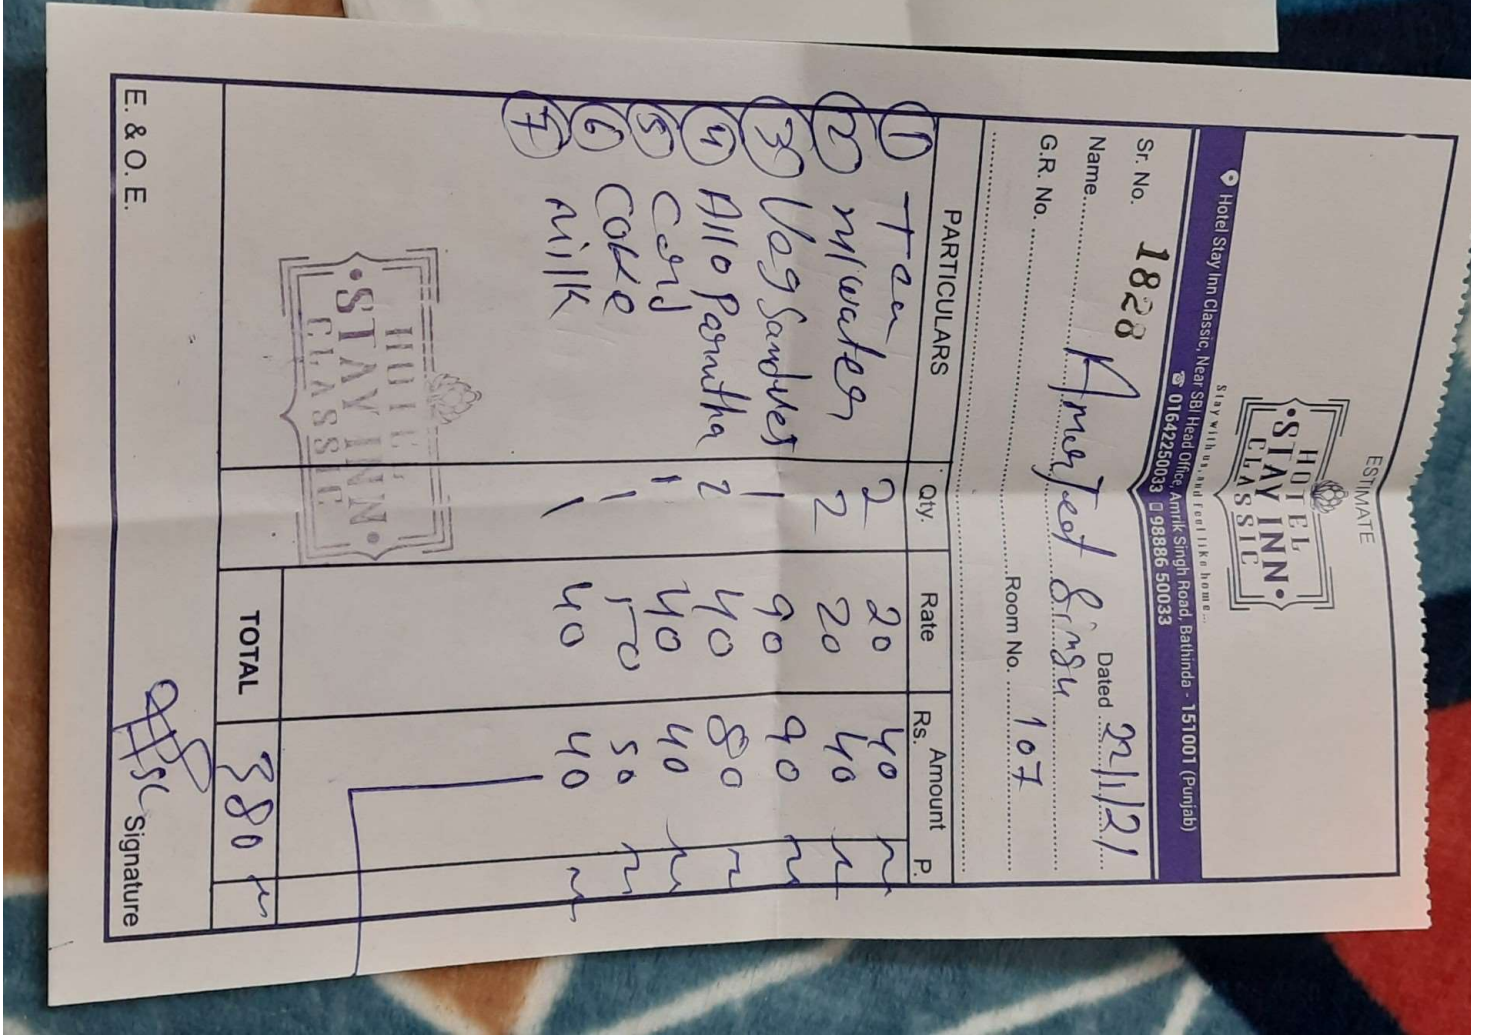 ESTIMATE
HOTEL
•STAY INN•
CLASSIC
Stay with us, and feel like home...
Hotel Stay Inn Classic, Near SBI Head Office, Amrik Singh Road, Bathinda - 151001 (Punjab)
01642250033 98886 50033
Sr. No. 1828 Dated 22/1/21
Name Amarjeet Singh
G.R. No. Room No. 107
PARTICULARS Qty. Rate Amount
Rs. P.
1 Tea 2 20 40
2 m/water 2 20 40
3 Veg 1 90 90
4 Allo Parntha 2 40 80
5 Curd 1 40 40
6 Coke 1 50 50
7 Milk 1 40 40
HOTEL
•STAY INN•
CLASSIC
TOTAL 380
E. & O. E. Signature